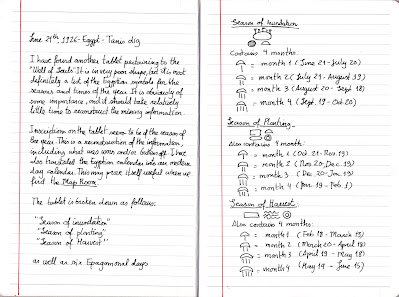 June 29th, 1926 - Egypt - Tanis dig
I have found another tablet pertaining to the
"Well of Souls". It is in very poor shape, but it is most
definitely a list of the Egyptian symbols for the
seasons and times of the year. It is obviously of
some importance, and it should take relatively
little time to reconstruct the missing information.
Inscriptions on the tablet seem to be of the season of
the year. This is a reconstruction of the information,
including what was worn and/or broken off. I have
also translated the Egyptian calendar into our modern
day calendar. This may prove itself useful when we
find the Map Room.
The tablet is broken down as follows:
"Season of inundation"
"Season of planting"
"Season of Harvest"
as well as six Epagomenal days
Season of Inundation
Contains 4 months:
= month 1 (June 21 - July 20)
= month 2 (July 21 - August 19)
= month 3 (August 20 - Sept 18)
= month 4 (Sept. 19 - Oct 20)
Season of Planting:
Also contains 4 month:
= month 1 (Oct. 21 - Nov. 19)
= month 2 (Nov 20 - Dec. 19)
= month 3 (Dec 20 - Jan. 18)
= month 4 (Jan. 19 - Feb. 1)
Season of Harvest
Also contains 4 months:
= month 1 (Feb 18 - March 19)
= month 2 (March 20 - April 18)
= month 3 (April 19 - May 18)
= month 4 (May 19 - June 15)